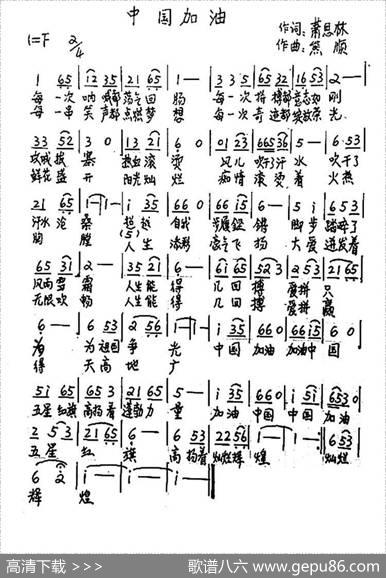 中国加油
作词：萧思林
1=F 2/4 作曲：熊 顺
1 65 | 12 35 | 21 65 | 1 — | 3 3 5 | 65 32 | 16 53 | 2 — |
每一次 呐喊都荡气回 肠 每一次 拼搏都意志如 刚
每一串 笑声都点燃梦 想 每一次 奇迹都 光
33 52 | 3 0 | 13 21 | 6 0 | 01 23 | 66536 | 5 — | 6 53 |
热血滚 烫 风儿 吹干了汗 水 吹干了
鲜花盛 开 阳光灿 烂 痴情 滚烫着 火热
21 65 | 1 — | 1 — | i 35 | 66 0 | 66 15 | 6 — | 5 i | 6 53 |
汗水 沧 桑 超越 自我 铿 锵 脚步 踏碎了
胸 膛 人生 豪气飞 扬 大爱 迸发着
65 31 | 2 — | 35 21 | 6 — | 61 65 | 52 3 | 2 53 | 21 65 |
风雨 霜 人生能 得 几回 搏 爱拼 只
无限欢 畅 人生能 得 几回 搏 爱拼 赢
6 — | 6 53 | 2 56 | 1 — | 1 — | i 35 | 66 0 | 66 i5 | 6 0 |
为 为祖国 争 光 中国 加油 加油中 国
得 天高 地 广
5i 65 | 65 3 | 21 65 | 1 — | i 35 | 66 0 | i 53 | 6530 |
五星 红旗 高扬着 蓬勃力 量 加油 中国 中国 加油
2 5 3 | 21 65 | 6 — | 6 53 | 22 56 | 1 — | 1 — :| 6 53 |
五星 红 旗 高扬着 灿烂辉 煌 灿烂
6 2 | i — | i — | i — ||
辉 煌
高清下载 >>>
歌谱八六 www.gepu86.com